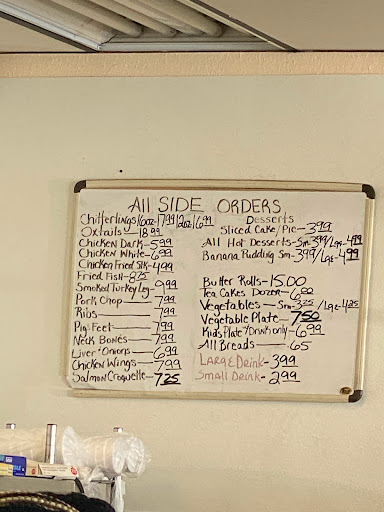 All SIDE ORDERS
Chitterlings 16oz-17.99/12oz-16.99
Oxtails-18.99
Chicken Dark-5.99
Chicken White-6.99
Chicken Fried Stk-4.99
Fried Fish-8.25
Smoked Turkey Leg-9.99
Pork Chop-7.99
Ribs-7.99
Pig Feet-7.99
Neck Bones-7.99
Liver & Onions-6.99
Chicken Wings-7.99
Salmon Croquette-7.25
Desserts
Sliced Cake/Pie-3.99
All Hot Desserts-Sm-3.99/Lge-4.99
Banana Pudding Sm-3.99/Lge-4.99
Butter Rolls-15.00
Tea Cakes Dozen-6.00
Vegetables-Sm-3.25/Lge-4.25
Vegetable Plate-7.50
Kids Plate w/Drink only-6.99
All Breads-.65
Large Drink-3.99
Small Drink-2.99